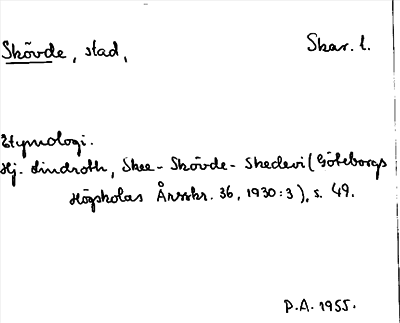 Skövde, stad, Skar. l.
Etymologi.
Hj. Lindroth, Skee - Skövde - Skedevi (Göteborgs
Högskolas Årsskr. 36, 1930:3), s. 49.
P.A. 1955.